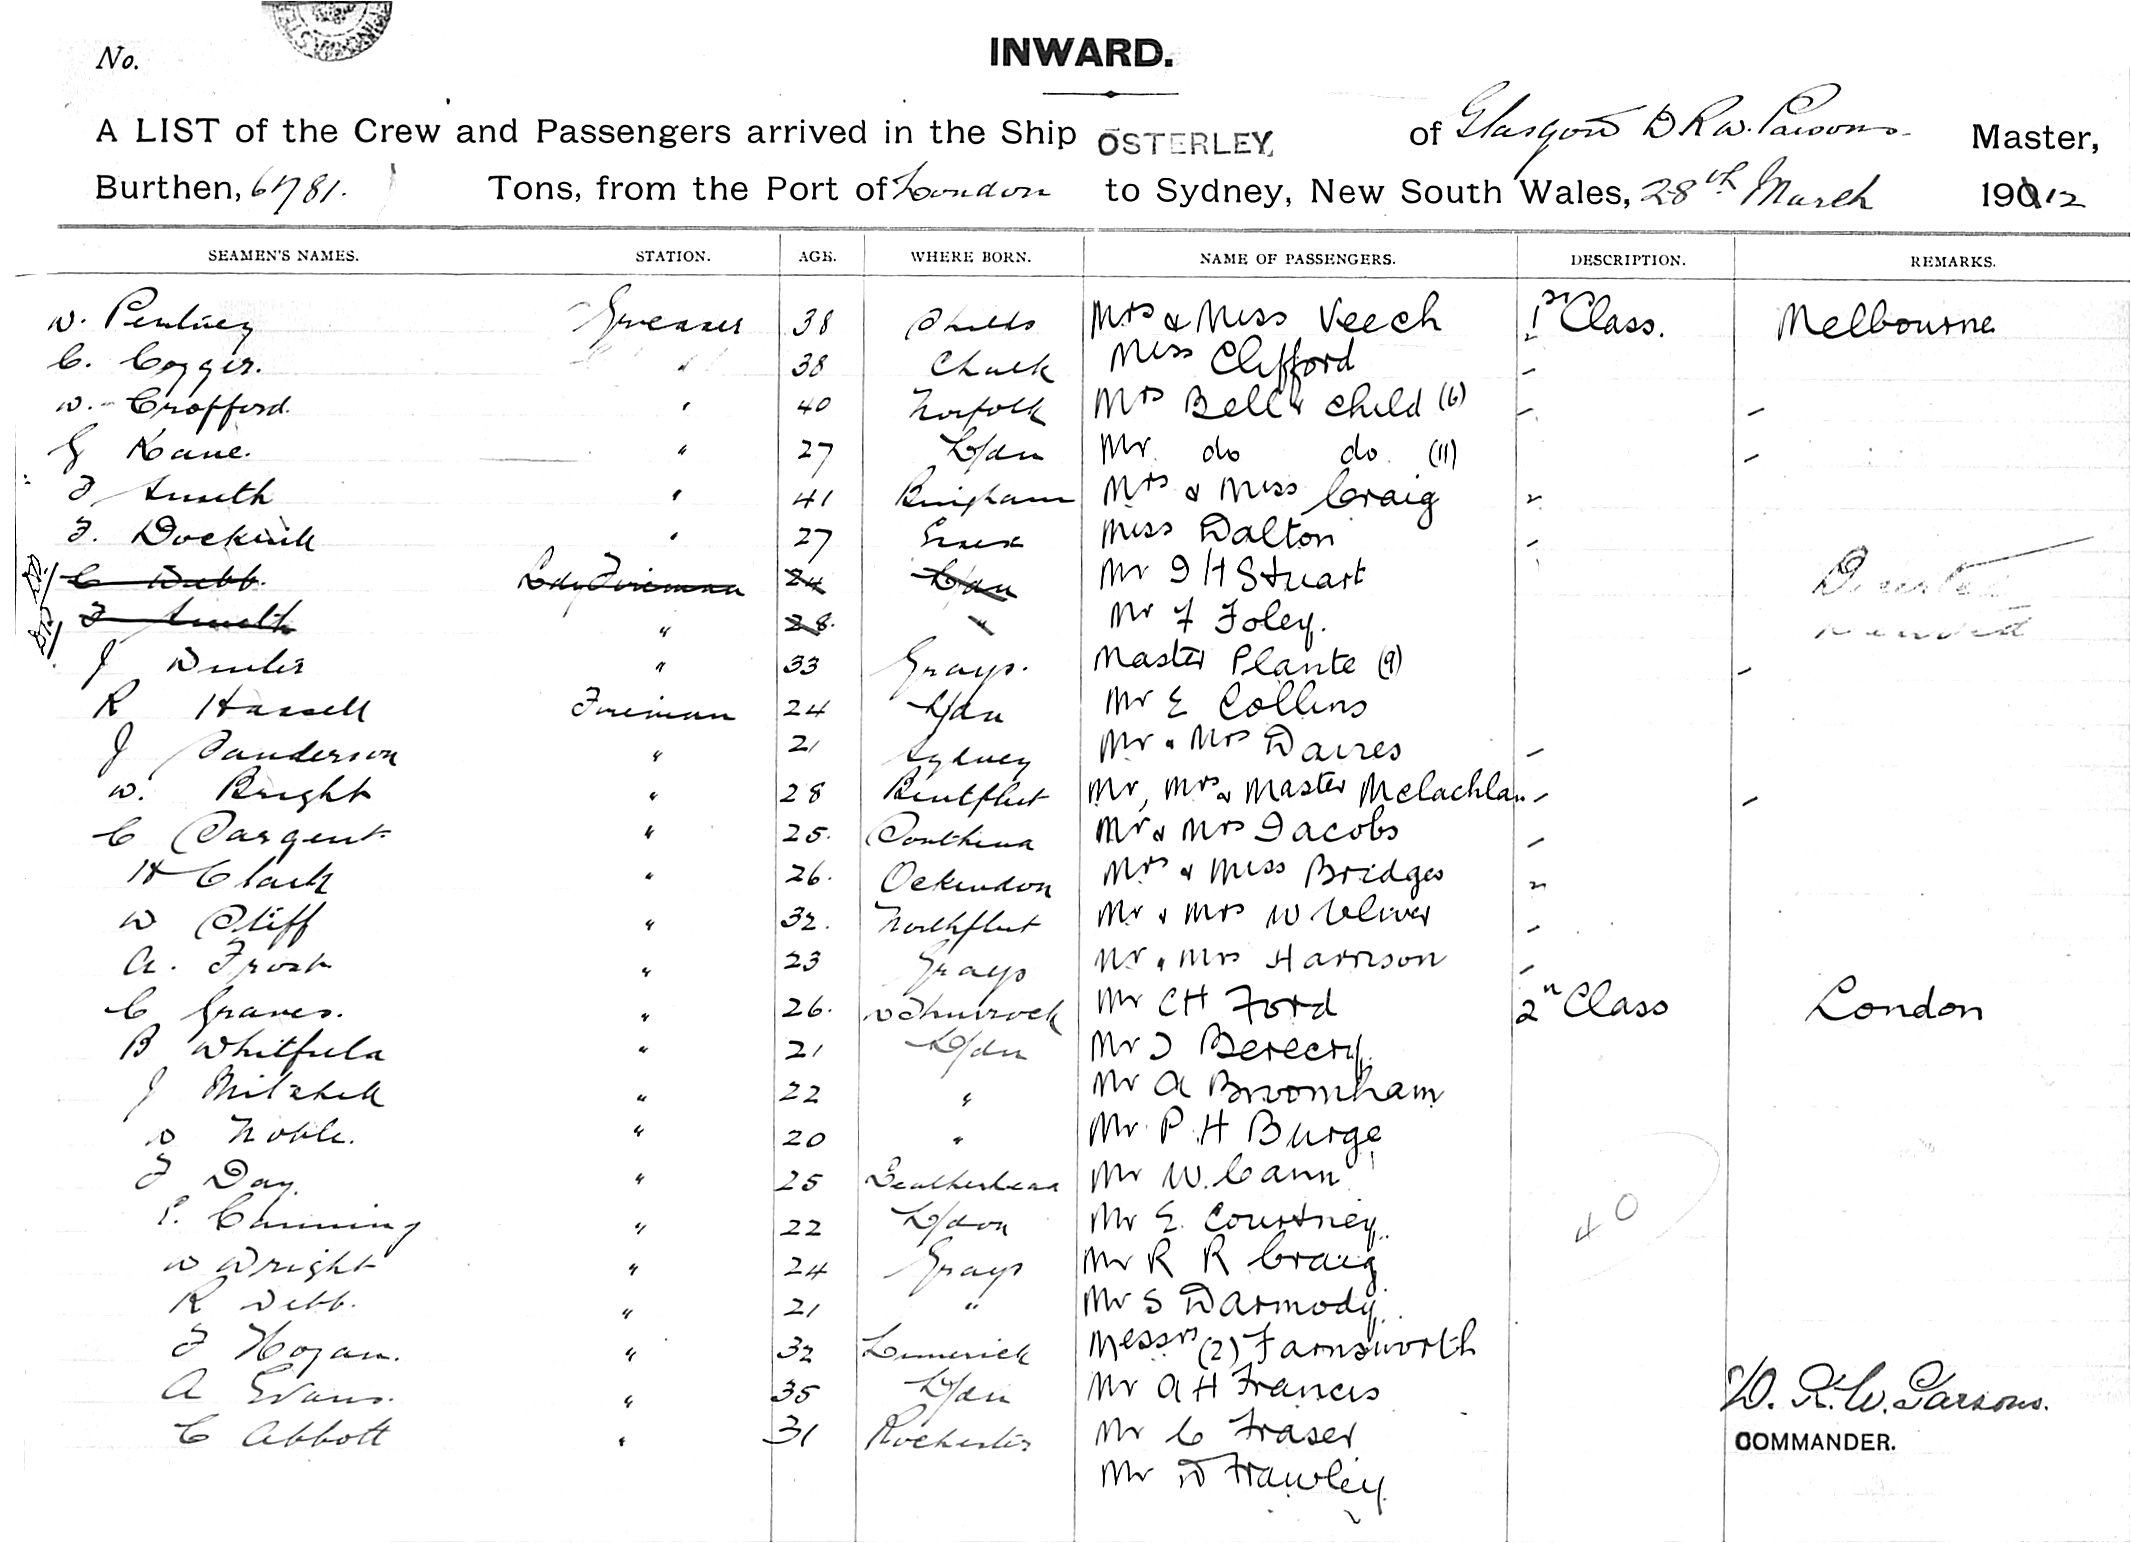 No.
INWARD.
A LIST of the Crew and Passengers arrived in the Ship OSTERLEY, of Glasgow D R W. Parsons Master,
Burthen, 6781. Tons, from the Port of London to Sydney, New South Wales, 28th March 1912
SEAMEN'S NAMES. STATION. AGE. WHERE BORN. NAME OF PASSENGERS. DESCRIPTION. REMARKS.
W. Pentney Greaser 38 Mrs & Miss Veech 1st Class. Melbourne
C. Cogger. " 38 Chalk Miss Clifford "
W. Crofford " 40 Norfolk Mrs Bell & child (6) " "
G Kane. " 27 L/dn Mr. do do. (11) "
F Smith " 41 Bingham Mrs & Miss Craig "
F. " 27 Essex Miss Dalton "
C Webb. Fireman 24 L/dn Mr I H Stuart
F Smith " 28. " Mr F Foley.
J " 33 Grays. Master Plante (9) "
R Hassell Fireman 24 L/dn Mr E Collins
J Sanderson " 21 Sydney Mr & Mrs Davies "
W. Bright " 28 Benfleet Mr, Mrs & Master McLachlan " "
C Sargent " 25. Mr & Mrs Jacobs "
H Clark " 26. Ockendon Mrs & Miss Bridges "
W Cliff " 32. Northfleet Mr & Mrs W Oliver "
A. Frost " 23 Grays Mr & Mrs Harrison "
C Graves. " 26. W Thurrock Mr C H Ford 2n Class London
B Whitfield " 21 L/dn Mr J Berecry.
J Mitchell " 22 " Mr A Broomham
W Noble. " 20 " Mr P. H Burge
F Day. " 25 Mr W. Cann
Canning " 22 L/don Mr E. Courtney. 40
W Wright " 24 Grays Mr R R Craig
R Webb. " 21 " Mr S Darmody.
F Hogan. " 32 Limerick Messrs (2) Farnsworth
A Evans. " 35 L/dn Mr A H Francis D. R. W. Parsons.
C Abbott " 31 Rochester Mr C Fraser COMMANDER.
Mr D Frawley.